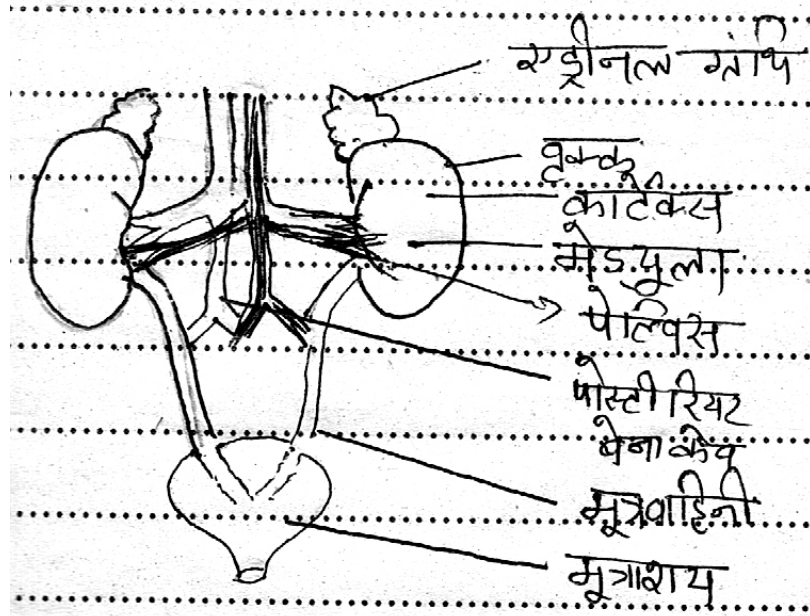 एड्रीनल ग्रंथि
वृक्क
कार्टेक्स
मेडयूला
पेल्विस
पोस्टीरियर
बेनाकेव
मूत्रवाहिनी
मूत्राशय